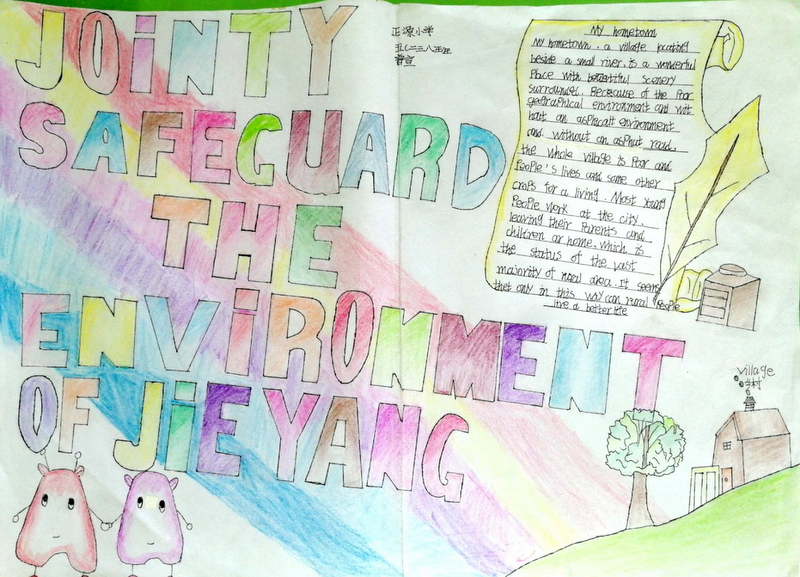 JOiNTY
SAFEGUARD
THE
ENViRONMENT
OF JiE YANG
正源小学
My hometown
My hometown, a village locating
beside a small river, is a wonderful
place with beautiful scenery
surround. Because of the poor
geographical environment and wit
hout an asphalt environment
and without an asphalt road,
the whole village is poor and
People's lives and some other
crops for a living. Most young
People work at the city,
leaving their Parents and
children at home, which is
the status of the vast
majority of rural area. It seems
that only in this way can rural People
live a better life
village
乡村